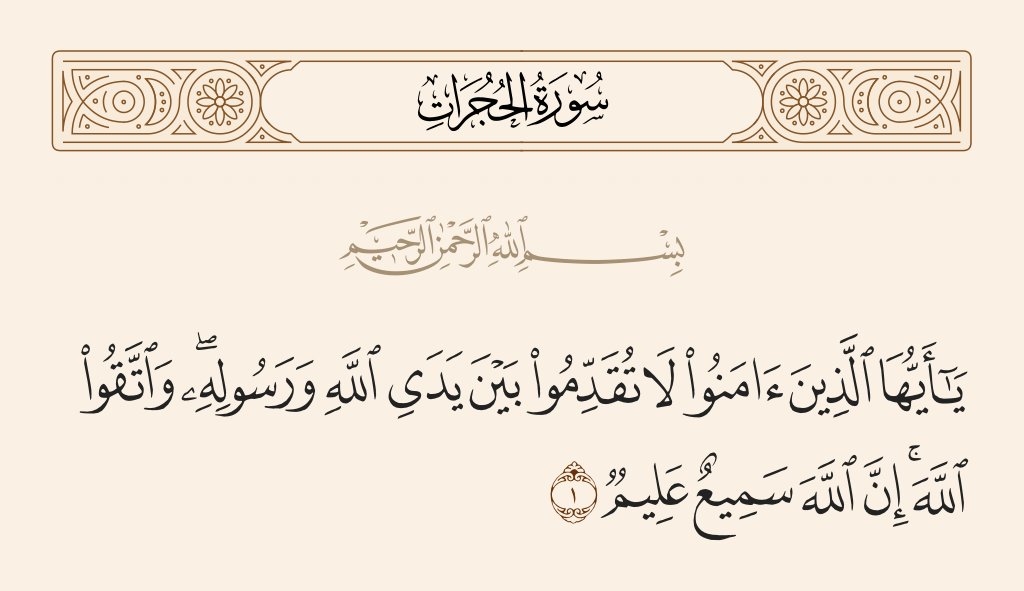 سُورَةُ الحُجُرَاتِ
بِسْمِ ٱللَّهِ ٱلرَّحْمَٰنِ ٱلرَّحِيمِ
يَـٰٓأَيُّهَا ٱلَّذِينَ ءَامَنُوا۟ لَا تُقَدِّمُوا۟ بَيْنَ يَدَىِ ٱللَّهِ وَرَسُولِهِۦ ۖ وَٱتَّقُوا۟
ٱللَّهَ ۚ إِنَّ ٱللَّهَ سَمِيعٌ عَلِيمٌ ١